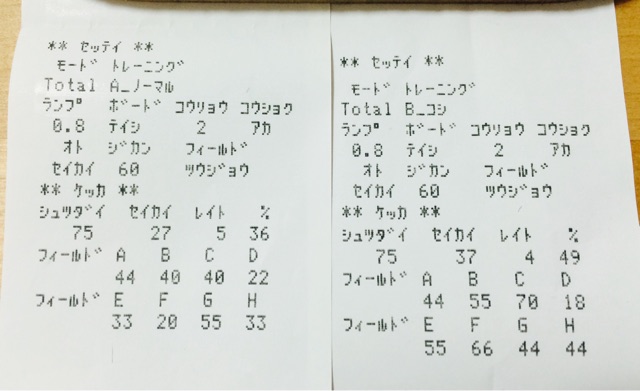 ** セッテイ **
モード トレーニング
Total A_ノーマル
ランプ ボード コウリョウ コウショク
0.8 テイシ 2 アカ
オト ジカン フィールド
セイカイ 60 ツウジョウ
** ケッカ **
シュツダイ セイカイ レイト %
75 27 5 36
フィールド A B C D
44 40 40 22
フィールド E F G H
33 20 55 33
** セッテイ **
モード トレーニング
Total B_コシ
ランプ ボード コウリョウ コウショク
0.8 テイシ 2 アカ
オト ジカン フィールド
セイカイ 60 ツウジョウ
** ケッカ **
シュツダイ セイカイ レイト %
75 37 4 49
フィールド A B C D
44 55 70 18
フィールド E F G H
55 66 44 44